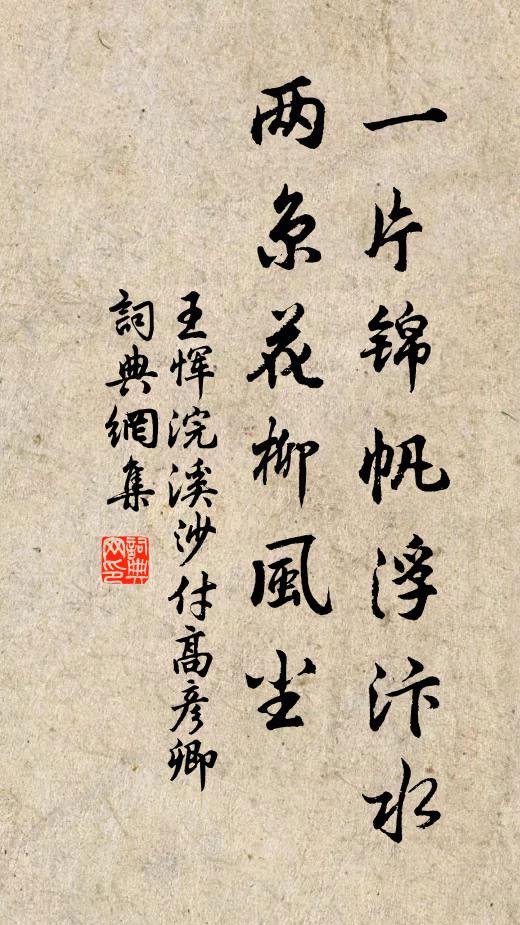 一片锦帆浮汴水
两京花柳風尘
王恽浣溪沙付高彦卿
詞典網集
詞典网印